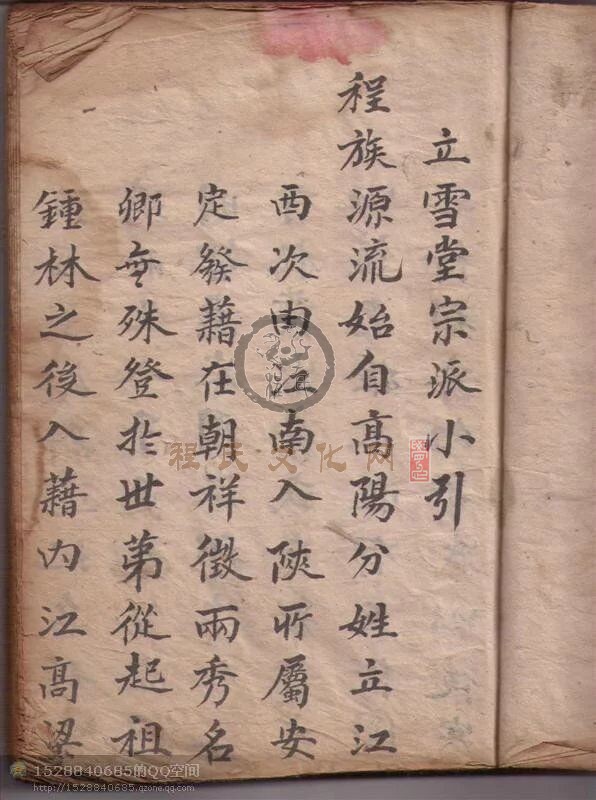 立雪堂宗派小引
程族源流始自高陽分姓立江
西次由江南入陝所屬安
定發藉在朝祥徵兩秀名
卿無殊登於世第從起祖
鍾林之後入藉內江高梁
程氏文化网
1528840685的QQ空间
http://1528840685.qzone.qq.com